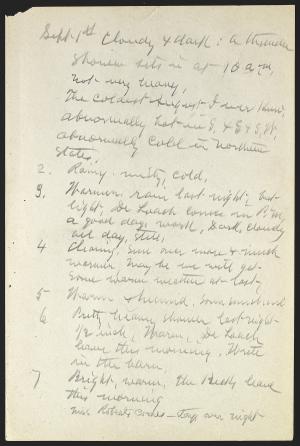 Sept. 1st Cloudy & dark: a thunder
shower sets in at 10 a.m.
not very heavy.
The coldest August I ever knew,
abnormally hot in S. & E & S.W.
abnormally cold in northern
states.
2. Rainy, misty, cold.
3. Warmer, rain last night; but
light, De Loach comes in P.M.
a good days work, Dark, cloudy
all day, still,
4 Clearing, sun over more & much
warmer, may be we will get
some warm weather at last,
5 Warm & humid, some sunshine
6 Pretty heavy shower last night
1/2 inch, Warm, De Loach
leave this morning. Write
in the barn,
7 Bright, warm, the leave
this morning
Miss Roberts comes — stays over night